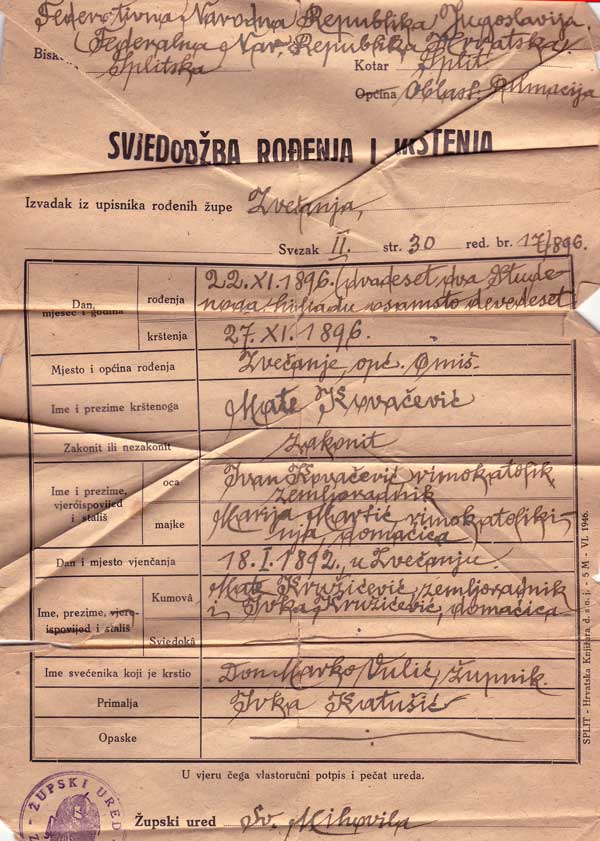 Federativna Narodna Republika Jugoslavija.
(Federalna Nar. Republika Hrvatska)
Splitska
Kotar Split
Općina Oblast. Dalmacija
SVJEDODŽBA ROĐENJA I KRŠTENJA
Izvadak iz upisnika rođenih župe Zvečanja,
Svezak II. str. 30 red. br. 17/1896.
Dan, mjesec i godina
rođenja
22.XI.1896. (dvadeset dva Stude-
noga hiljadu osamsto devedeset
krštenja
27.XI.1896.
Mjesto i općina rođenja
Zvečanje, opć. Omiš.
Ime i prezime krštenoga
Mate Kovačević
Zakonit ili nezakonit
zakonit
Ime i prezime, vjeroispovijed i stališ
oca
Ivan Kovačević rimokatolik
zemljoradnik
majke
Marija Maršić, rimokatoliki-
nja, domaćica
Dan i mjesto vjenčanja
18.I.1892., u Zvečanju.
Ime, prezime, vjero-
ispovijed i stališ
Kumovâ
Mate Kružićević, zemljoradnik
i Ivka Kružićević, domaćica
Svjedokâ
Ime svećenika koji je krstio
Don Marko Vulić, župnik.
Primalja
Ivka Katušić
Opaske
SPLIT - Hrvatska Knjižara d. s. o. j. - 5 M - VI. 1946.
U vjeru čega vlastoručni potpis i pečat ureda.
Župski ured Sv. Mihovila
ŽUPSKI URED